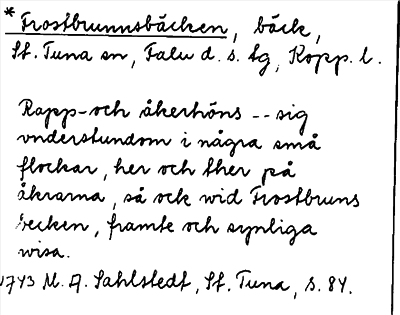 * Frostbrunnsbäcken, bäck,
St. Tuna sn, Falu d. s. tg, Kopp. l.
Rapp- och åkerhöns -- sig
vnderstundom i några små
flockar, her och ther på
åkrarna, så ock wid Frostbruns
becken, framte och synliga
wisa.
1743 M. A. Sahlstedt, St. Tuna, s. 84.